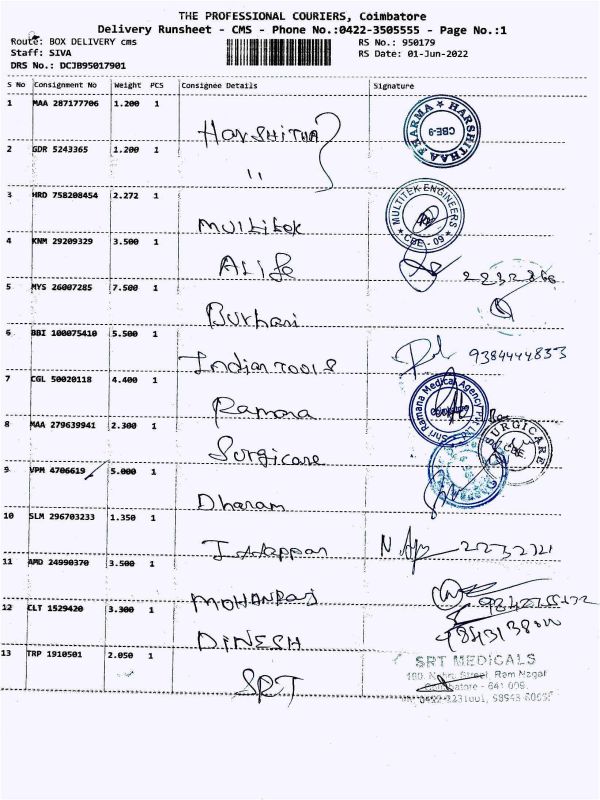 THE PROFESSIONAL COURIERS, Coimbatore
Delivery Runsheet - CMS - Phone No.:0422-3505555 - Page No.:1
Route: BOX DELIVERY cms RS No.: 950179
Staff: SIVA RS Date: 01-Jun-2022
DRS No.: DCJB95017901
S No Consignment No Weight PCS Consignee Details Signature
1 MAA 287177706 1.200 1
HARSHITHA
HARSHITHAA PHARMA CBE-9
2 GDR 5243365 1.200 1
"
3 HRD 758208454 2.272 1
Multitek
MULTITEK ENGINEERS CBE - 09
4 KNM 29209329 3.500 1
ALife
5 MYS 26007285 7.500 1
Burhani
6 BBI 100075410 5.500 1
Indian Tools
9384444833
7 CGL 50020118 4.400 1
Ramana
Shri Ramana Medical Agency
8 MAA 279639941 2.300 1
Surgicare
SURGICARE CBE
9 VPM 4706619 5.000 1
Dharam
10 SLM 296703233 1.350 1
2232321
11 AMD 24990370 3.500 1
MOHANRAJ
12 CLT 1529420 3.300 1
DINESH
13 TRP 1910501 2.050 1
SRT
SRT MEDICALS
180, Nehru Street, Ram Nagar
Coimbatore - 641 009.